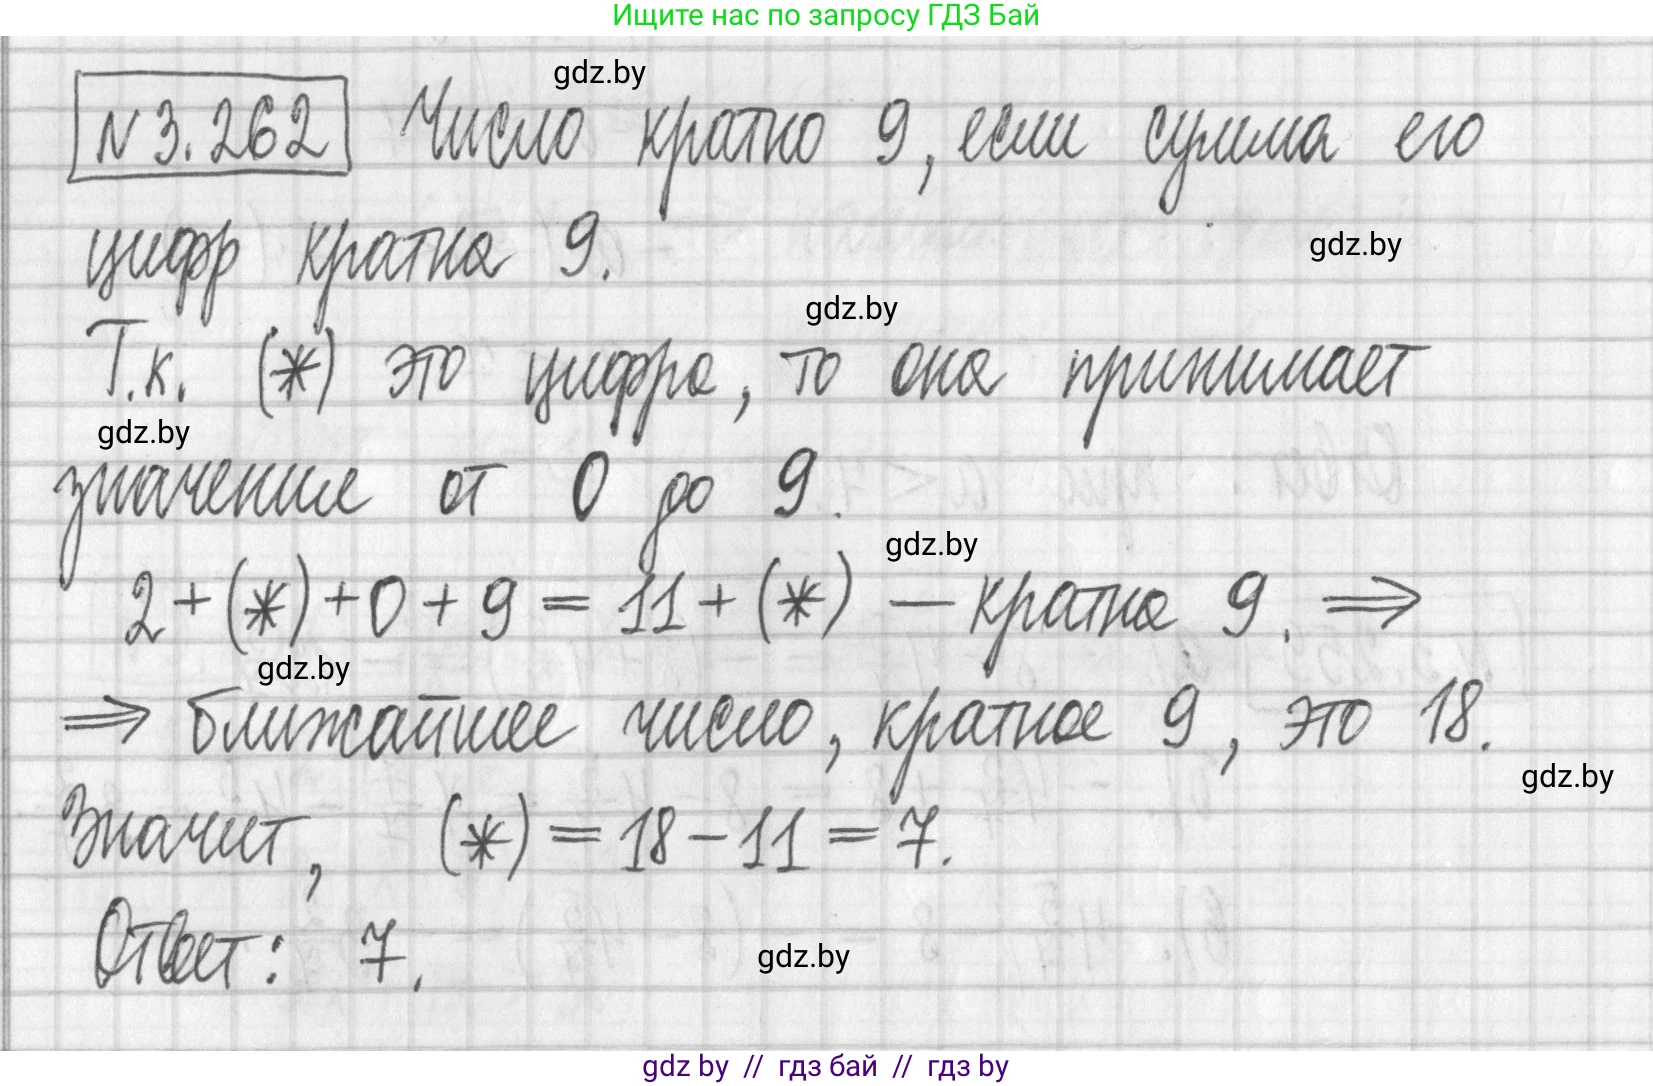 Ищите нас по запросу ГДЗ Бай
gdz.by
N 3.262 Число кратно 9, если сумма его
цифр кратна 9.
gdz.by
gdz.by
Т.к. (*) это цифра, то она принимает
gdz.by
значения от 0 до 9.
gdz.by
2+(*)+0+9=11+(*) — кратна 9. ⇒
gdz.by
⇒ ближайшее число, кратное 9, это 18.
gdz.by
Значит, (*)=18-11=7.
Ответ: 7.
gdz.by
gdz by // гдз бай // гдз by